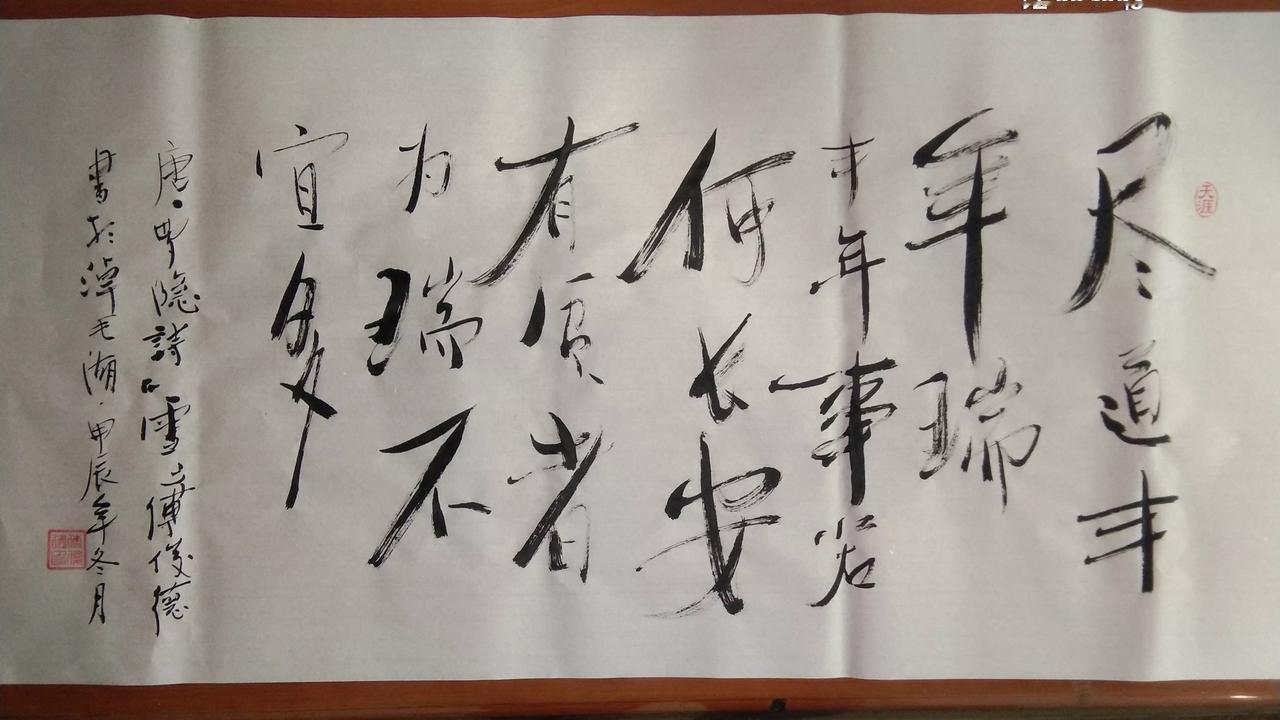 天涯
尽道丰
年瑞
丰年事若
何长安
有贫者
为瑞不
宜多
唐·罗隐詩《雪》傅俊德
書於淖毛湖·甲辰年冬月